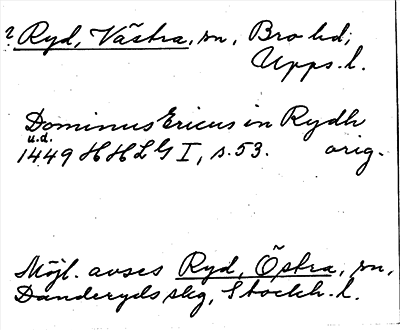 ? Ryd, Västra, sn, Bro hd,
Upps. l.
Dominus Ericus in Rydh
u.d.
1449 HHLG I, s. 53. orig.
Möjl. avses Ryd, Östra, sn,
Danderyds slg, Stockh. l.